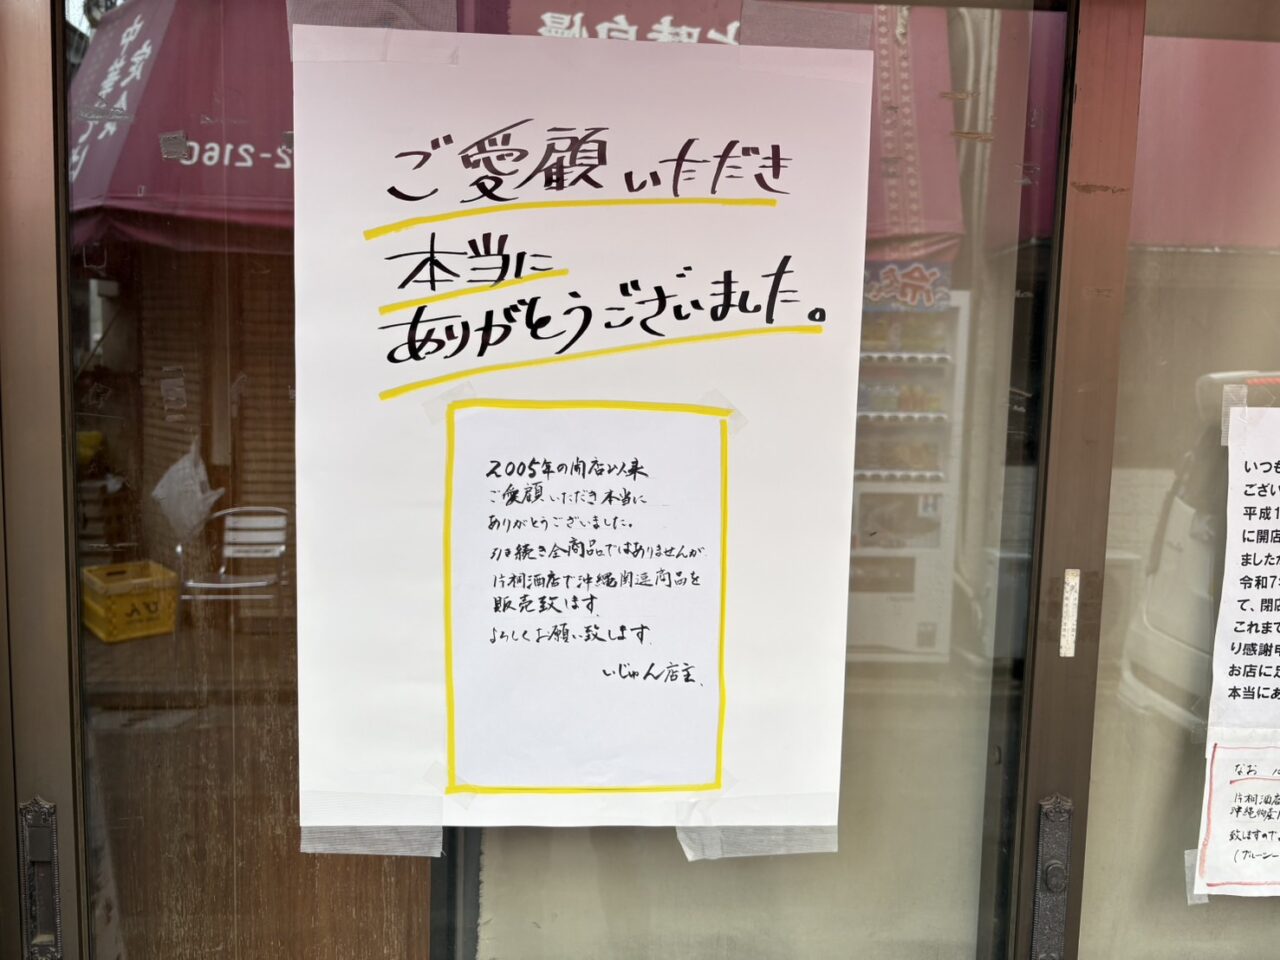 ご愛顧いただき
本当に
ありがとうございました。
2005年の開店以来
ご愛顧いただき本当に
ありがとうございました。
引き続き全商品ではありませんが
片桐酒店で沖縄関連商品を
販売致ます
よろしくお願い致します
いじゅん店主、
いつも
ござい
平成1
に開店
ましたが
令和7年
て、閉店
これまで
り感謝申
お店に足
本当にあ
なお
片桐酒店
沖縄物産
致ますので、
(ブルーシー
2-2160
味自慢
中華
びん